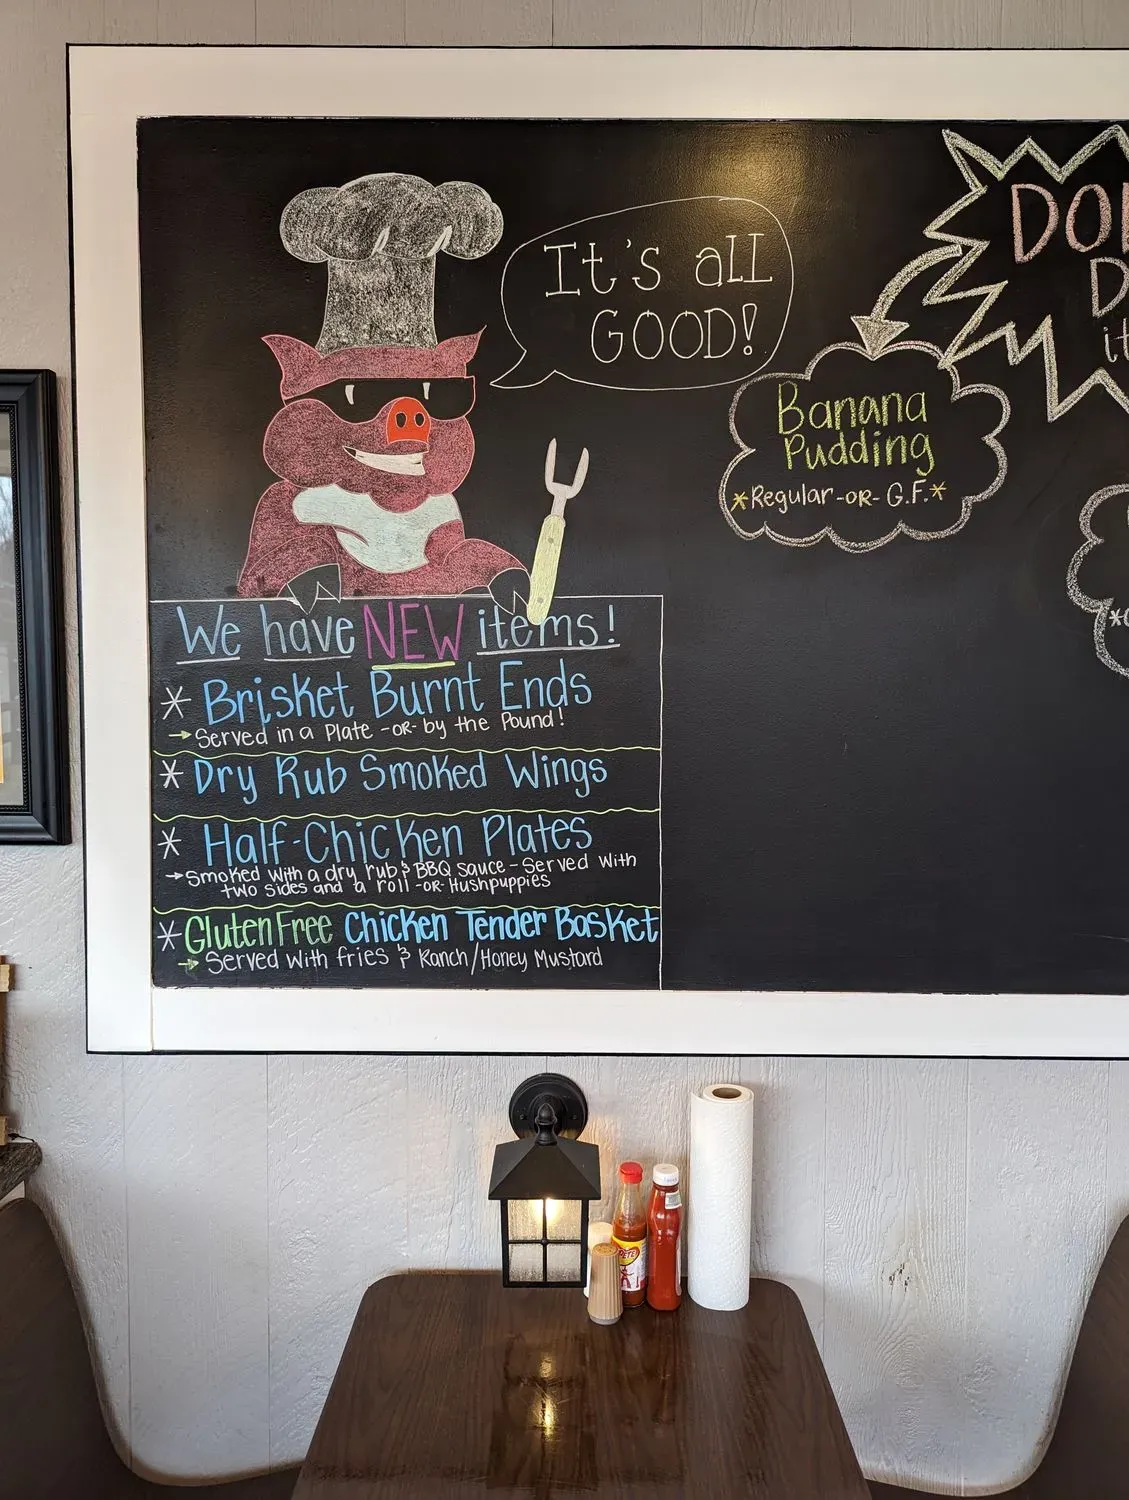 It's all
GOOD!
Banana
Pudding
*Regular -OR- G.F.*
We have NEW items!
* Brisket Burnt Ends
→ Served in a Plate -OR- by the Pound!
* Dry Rub Smoked Wings
* Half-Chicken Plates
→ Smoked with a dry rub & BBQ sauce - Served with
two sides and a roll -OR- Hushpuppies
* Gluten Free Chicken Tender Basket
→ Served with fries & Ranch/Honey Mustard
PETE